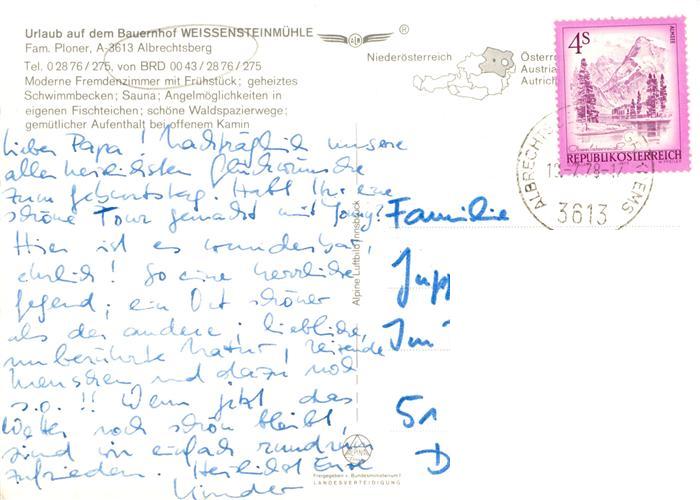 Urlaub auf dem Bauernhof WEISSENSTEINMÜHLE
Fam. Ploner, A-3613 Albrechtsberg
Tel. 0 28 76 / 275, von BRD 00 43 / 28 76 / 275
Moderne Fremdenzimmer mit Frühstück; geheiztes
Schwimmbecken; Sauna; Angelmöglichkeiten in
eigenen Fischteichen; schöne Waldspazierwege;
gemütlicher Aufenthalt bei offenem Kamin
Niederösterreich
Österr
Austria
Autrich
4 S
ALMSEE
REPUBLIK ÖSTERREICH
ALBRECHTS
KREMS
3613
Lieber Papa! Nachträglich unsere
allerherzlichsten Glückwünsche
zum Geburtstag. Habt Ihr eine
schöne Tour gemacht mit Jony?
Hier ist es wunderbar,
ehrlich! So eine herrliche
Gegend; ein Ort schöner
als der andere; liebliche,
unberührte Natur, reizende
Menschen und dazu noch
s.o.!! Wenn jetzt das
Wetter noch schön bleibt,
sind wir einfach rundrum
zufrieden. Herzlichst Eure
Kinder
Familie
Jupp
51
D
Alpine Luftbild Innsbruck
Freigegeben v. Bundesministerium f.
LANDESVERTEIDIGUNG